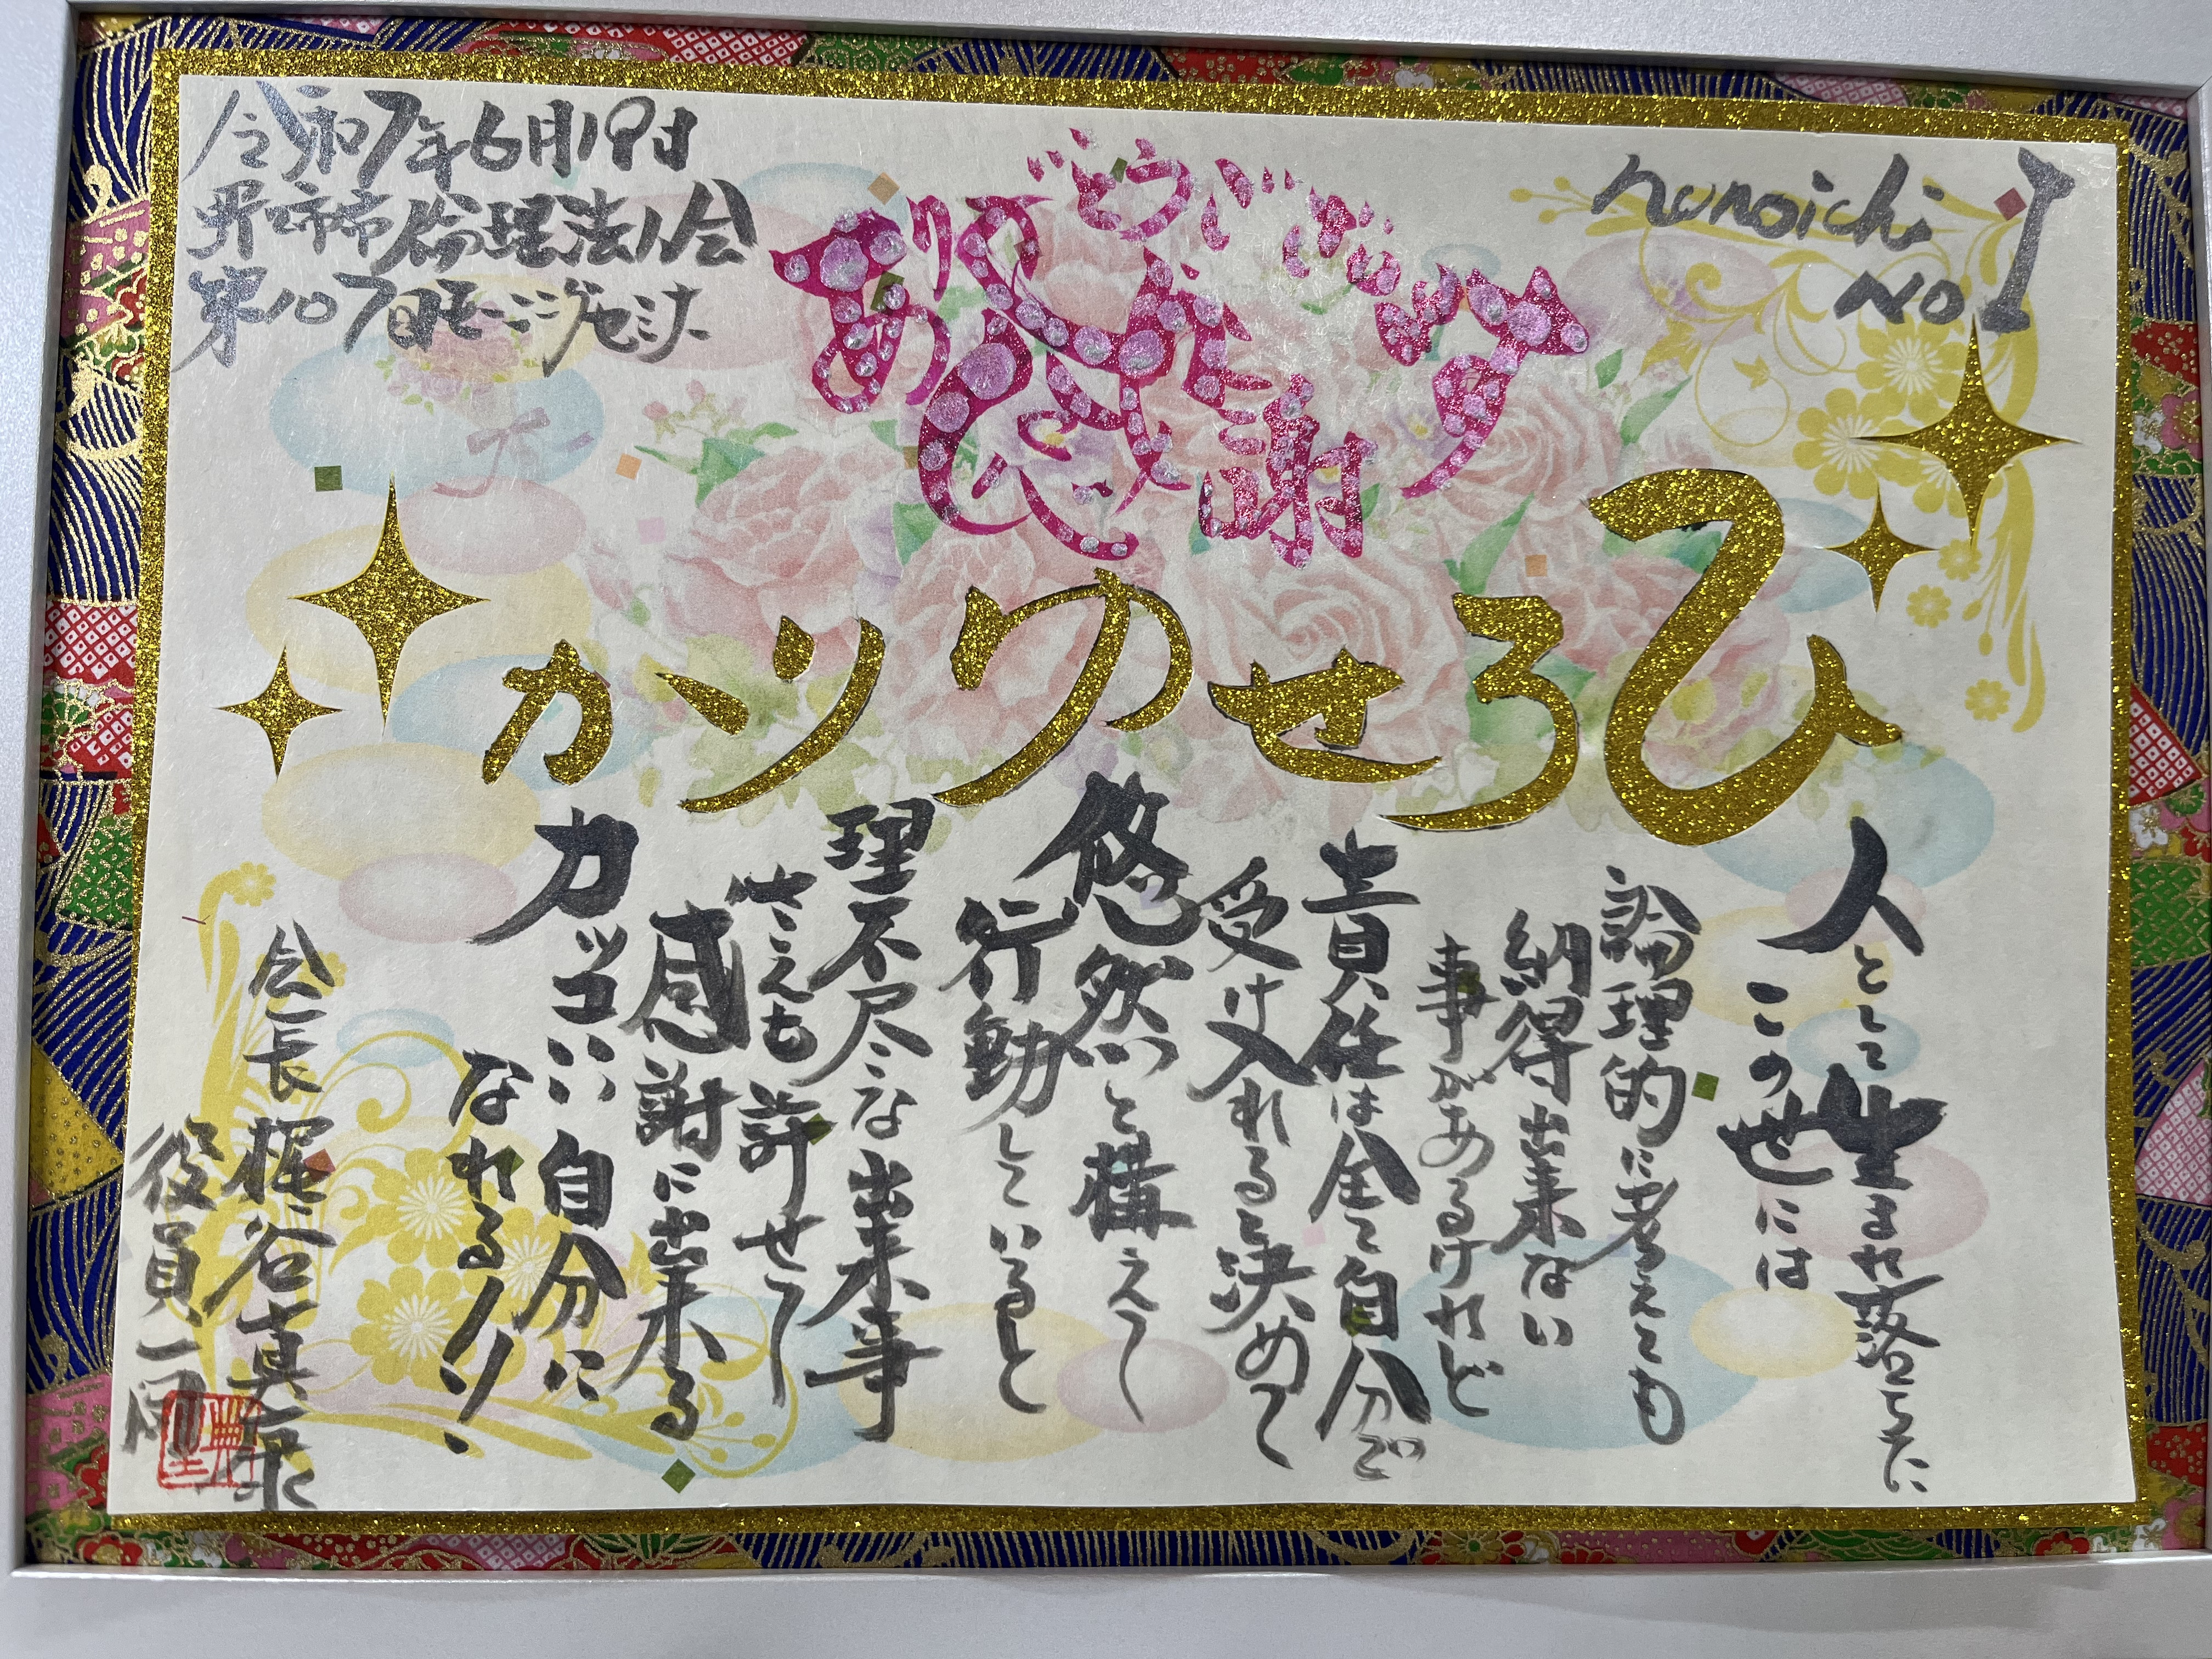 令和7年6月19日
野々市市倫理法人会
第107回モーニングセミナー
ありがとうございます
感謝
nonoichi
No1
ひろせゆりか
人として生まれ落ちたに
この世には
論理的に考えても
納得出来ない
事があるけれど
責任は全て自分で
受け入れると決めて
悠然と構えて
行動していると
理不尽な出来事
さえも許せて
感謝に出来る
カッコいい自分に
なれるノリ、
会長 梶谷真康
役員一同